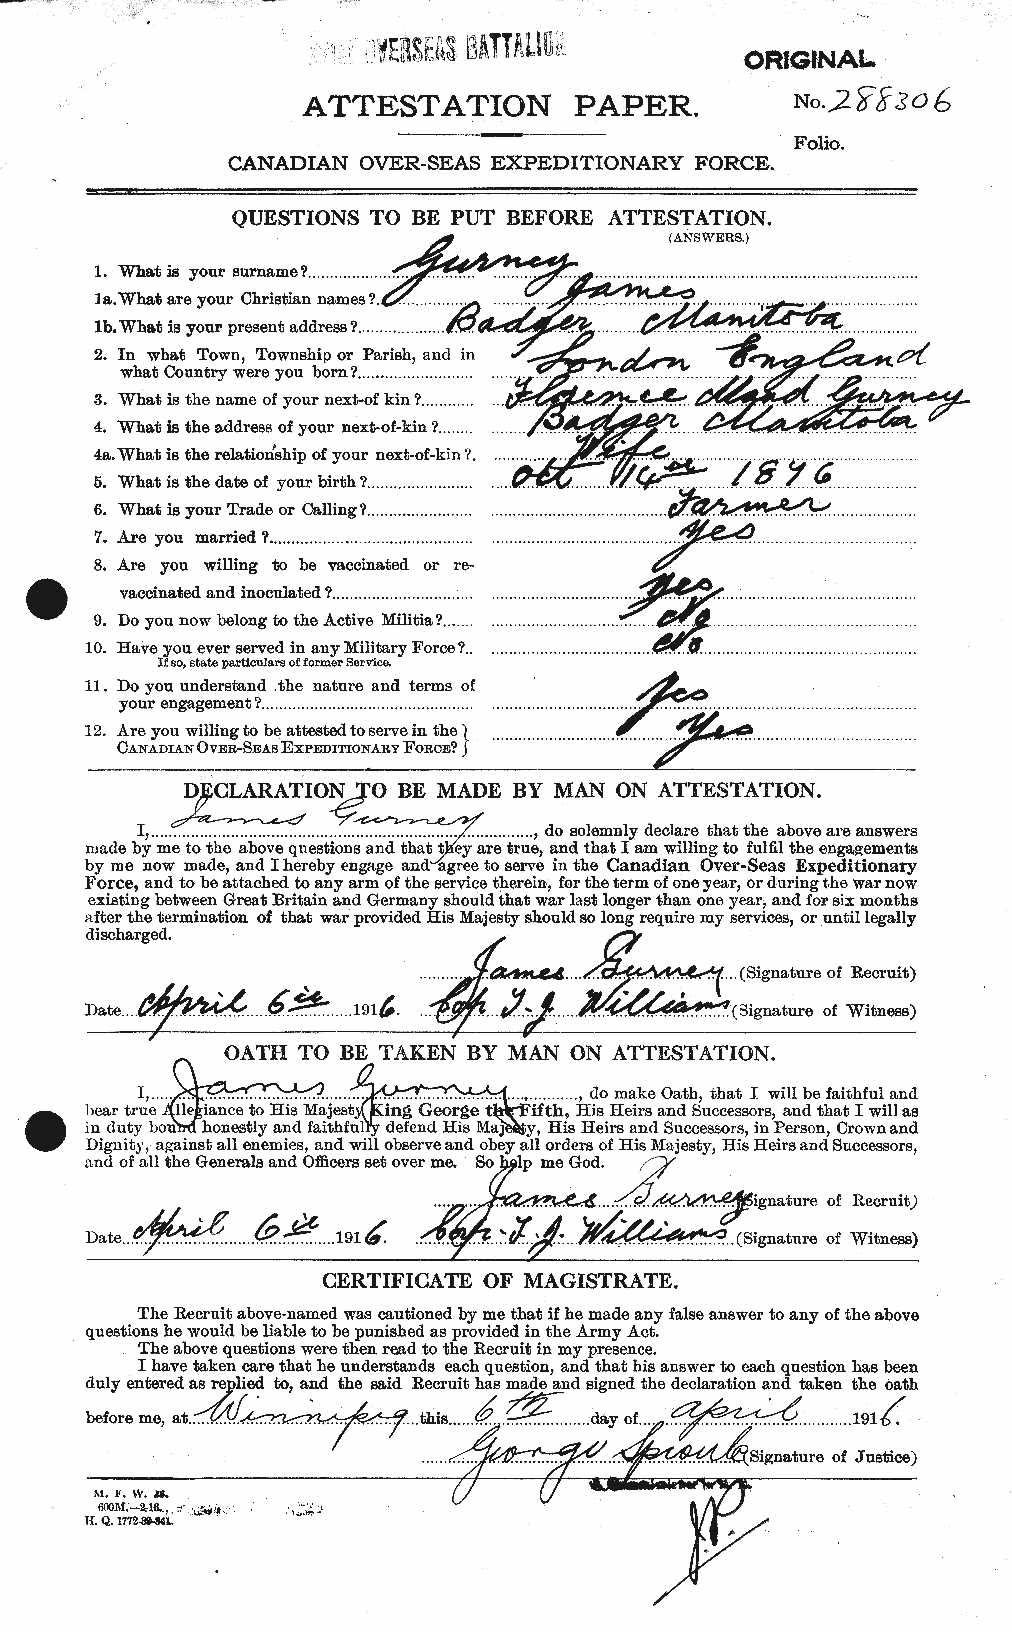 OVERSEAS BATTALION
ORIGINAL
ATTESTATION PAPER.
No. 288306
Folio.
CANADIAN OVER-SEAS EXPEDITIONARY FORCE.
QUESTIONS TO BE PUT BEFORE ATTESTATION.
(ANSWERS.)
1. What is your surname? Gurney
1a. What are your Christian names? James
1b. What is your present address? Badger Manitoba
2. In what Town, Township or Parish, and in
what Country were you born? London England
3. What is the name of your next-of kin? Florence Maud Gurney
4. What is the address of your next-of-kin? Badger Manitoba
4a. What is the relationship of your next-of-kin? Wife
5. What is the date of your birth? Oct 14th 1896
6. What is your Trade or Calling? Farmer
7. Are you married? Yes
8. Are you willing to be vaccinated or re-
vaccinated and inoculated? Yes
9. Do you now belong to the Active Militia? No
10. Have you ever served in any Military Force? No
If so, state particulars of former Service.
11. Do you understand the nature and terms of
your engagement? Yes
12. Are you willing to be attested to serve in the
CANADIAN OVER-SEAS EXPEDITIONARY FORCE? Yes
DECLARATION TO BE MADE BY MAN ON ATTESTATION.
I, James Gurney, do solemnly declare that the above are answers
made by me to the above questions and that they are true, and that I am willing to fulfil the engagements
by me now made, and I hereby engage and agree to serve in the Canadian Over-Seas Expeditionary
Force, and to be attached to any arm of the service therein, for the term of one year, or during the war now
existing between Great Britain and Germany should that war last longer than one year, and for six months
after the termination of that war provided His Majesty should so long require my services, or until legally
discharged.
James Gurney (Signature of Recruit)
Date April 6th 1916. Cap T. J. Williams (Signature of Witness)
OATH TO BE TAKEN BY MAN ON ATTESTATION.
I, James Gurney, do make Oath, that I will be faithful and
bear true Allegiance to His Majesty King George the Fifth, His Heirs and Successors, and that I will as
in duty bound honestly and faithfully defend His Majesty, His Heirs and Successors, in Person, Crown and
Dignity, against all enemies, and will observe and obey all orders of His Majesty, His Heirs and Successors,
and of all the Generals and Officers set over me. So help me God.
James Gurney (Signature of Recruit)
Date April 6th 1916. Cap. T. J. Williams (Signature of Witness)
CERTIFICATE OF MAGISTRATE.
The Recruit above-named was cautioned by me that if he made any false answer to any of the above
questions he would be liable to be punished as provided in the Army Act.
The above questions were then read to the Recruit in my presence.
I have taken care that he understands each question, and that his answer to each question has been
duly entered as replied to, and the said Recruit has made and signed the declaration and taken the oath
before me, at Winnipeg this 6th day of April 1916.
George Sproule (Signature of Justice)
M. F. W.
600M.-2-16.
H. Q. 1772-
J.P.